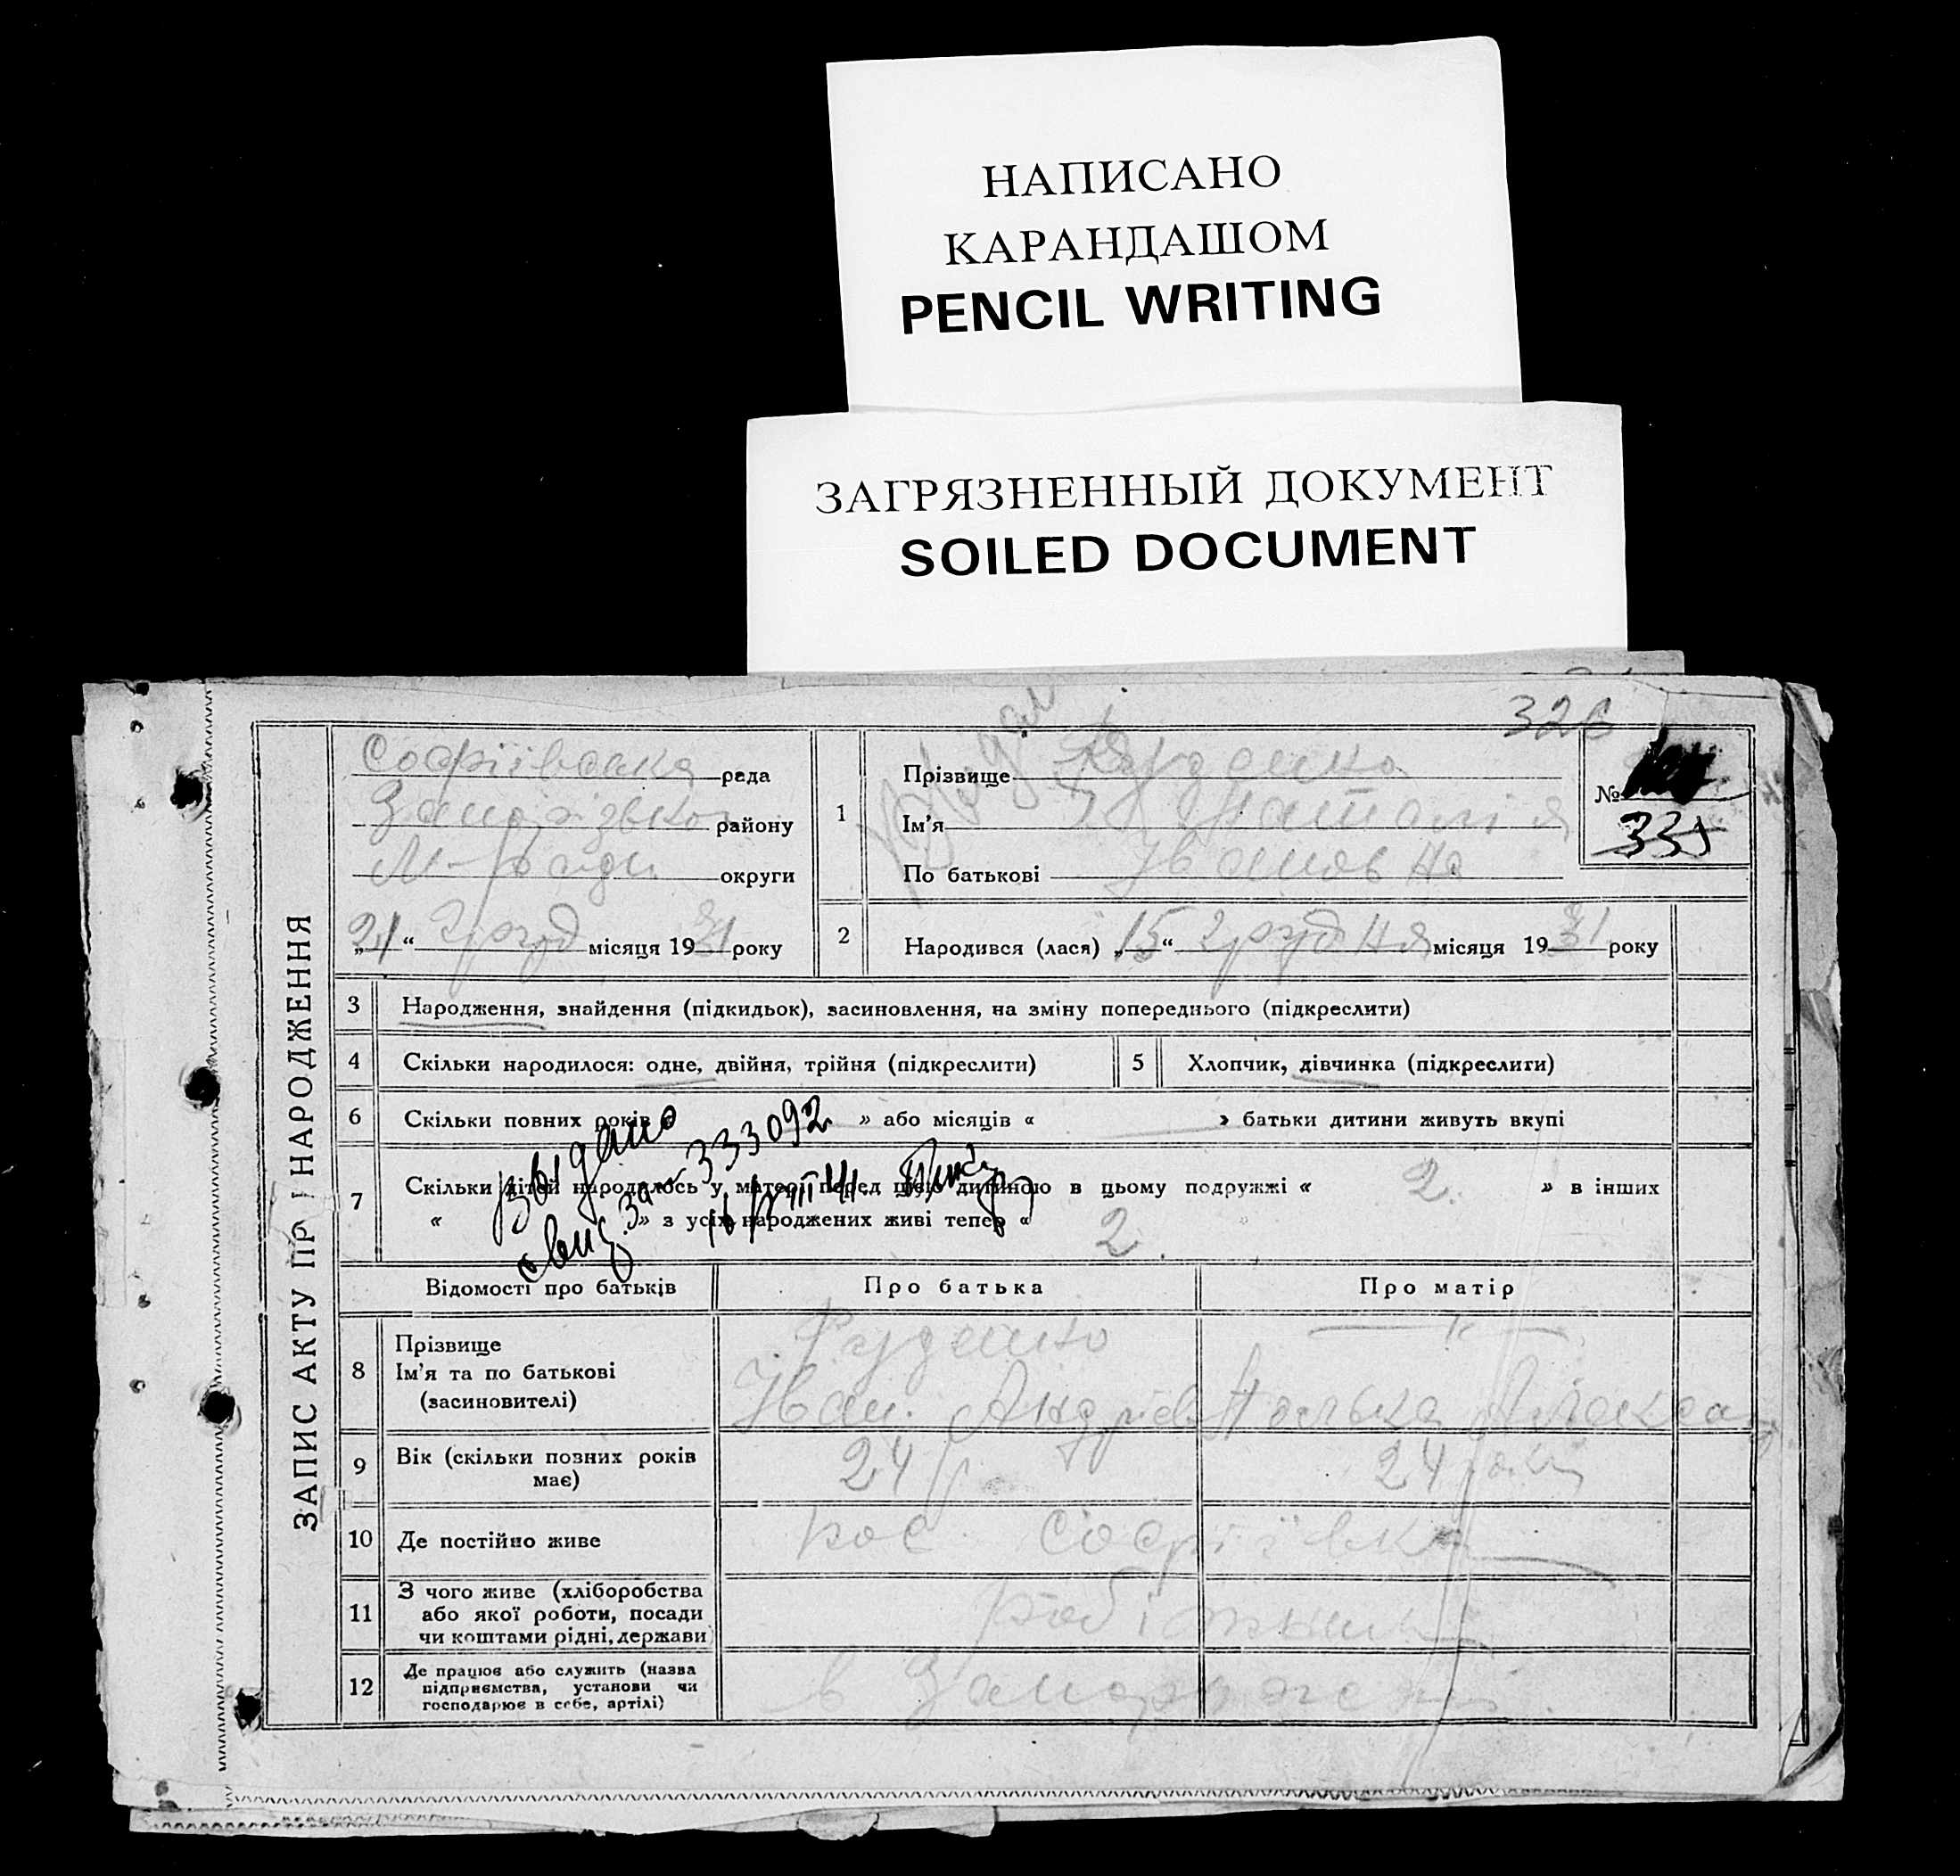 НАПИСАНО
КАРАНДАШОМ
PENCIL WRITING
ЗАГРЯЗНЕННЫЙ ДОКУМЕНТ
SOILED DOCUMENT
326
ЗАПИС АКТУ ПРО НАРОДЖЕННЯ
Софіївська рада
району
округи
„21“ груд місяця 1931 року
1
Прізвище Руденко
Ім'я Наталія
По батькові Івановна
№
335
2
Народився (лася) „15“ грудня місяця 1931 року
3 Народження, знайдення (підкидьок), засиновлення, на зміну попереднього (підкреслити)
4 Скільки народилося: одне, двійня, трійня (підкреслити)
5 Хлопчик, дівчинка (підкреслити)
6 Скільки повних років » або місяців « » батьки дитини живуть вкупі
7 Скільки дітей народилось у матери перед цією дитиною в цьому подружжі « 2. » в інших
« » з усіх народжених живі тепер « 2.
Выдано
333092
Відомості про батьків
Про батька
Про матір
8 Прізвище
Ім'я та по батькові
(засиновителі)
Руденко
Іван Андріев
9 Вік (скільки повних років
має)
24 р
24 роки
10 Де постійно живе
пос Софіївка
11 З чого живе (хліборобства
або якої роботи, посади
чи коштами рідні, держави)
12 Де працює або служить (назва
підприємства, установи чи
господарює в себе, артілі)
в Запоріжжі